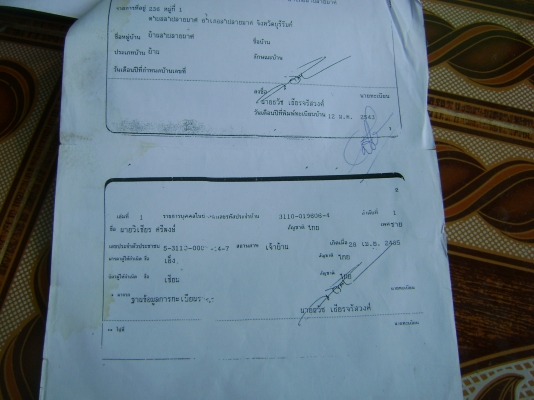 รายการที่อยู่ 236 หมู่ที่ 1
ตำบลลำปลายมาศ อำเภอลำปลายมาศ จังหวัดบุรีรัมย์
ชื่อหมู่บ้าน บ้านลำปลายมาศ ชื่อบ้าน
ประเภทบ้าน บ้าน ลักษณะบ้าน
วันเดือนปีที่กำหนดบ้านเลขที่
ลงชื่อ นายทะเบียน
นายธวัช เธียรจรัสวงศ์
วันเดือนปีที่พิมพ์ทะเบียนบ้าน 12 ม.ค. 2543
1
2
เล่มที่ 1 รายการบุคคลในบ้านเลขรหัสประจำบ้าน 3110-019808-4 ลำดับที่ 1
ชื่อ นายวิเชียร ศรีสงค์ สัญชาติ ไทย เพศ ชาย
เลขประจำตัวประชาชน สถานภาพ เจ้าบ้าน เกิดเมื่อ 28 เม.ย. 2485
มารดาผู้ให้กำเนิด ชื่อ เอ็ง สัญชาติ ไทย
บิดาผู้ให้กำเนิด ชื่อ เธียม สัญชาติ ไทย
มาจาก ฐานข้อมูลการทะเบียน นายทะเบียน
นายธวัช เธียรจรัสวงศ์
ไปที่ นายทะเบียน